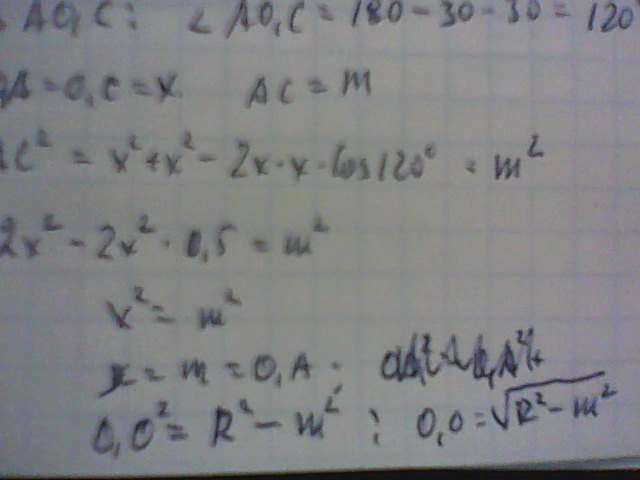 AO₁C: ∠ AO₁C = 180 - 30 - 30 = 120
A = O₁C = x AC = m
AC² = x² + x² - 2x · x · Cos 120° = m²
2x² - 2x² · 0,5 = m²
x² = m²
x = m = O₁A ;
O₁O² = R² - m² ; O₁O = √R² - m²